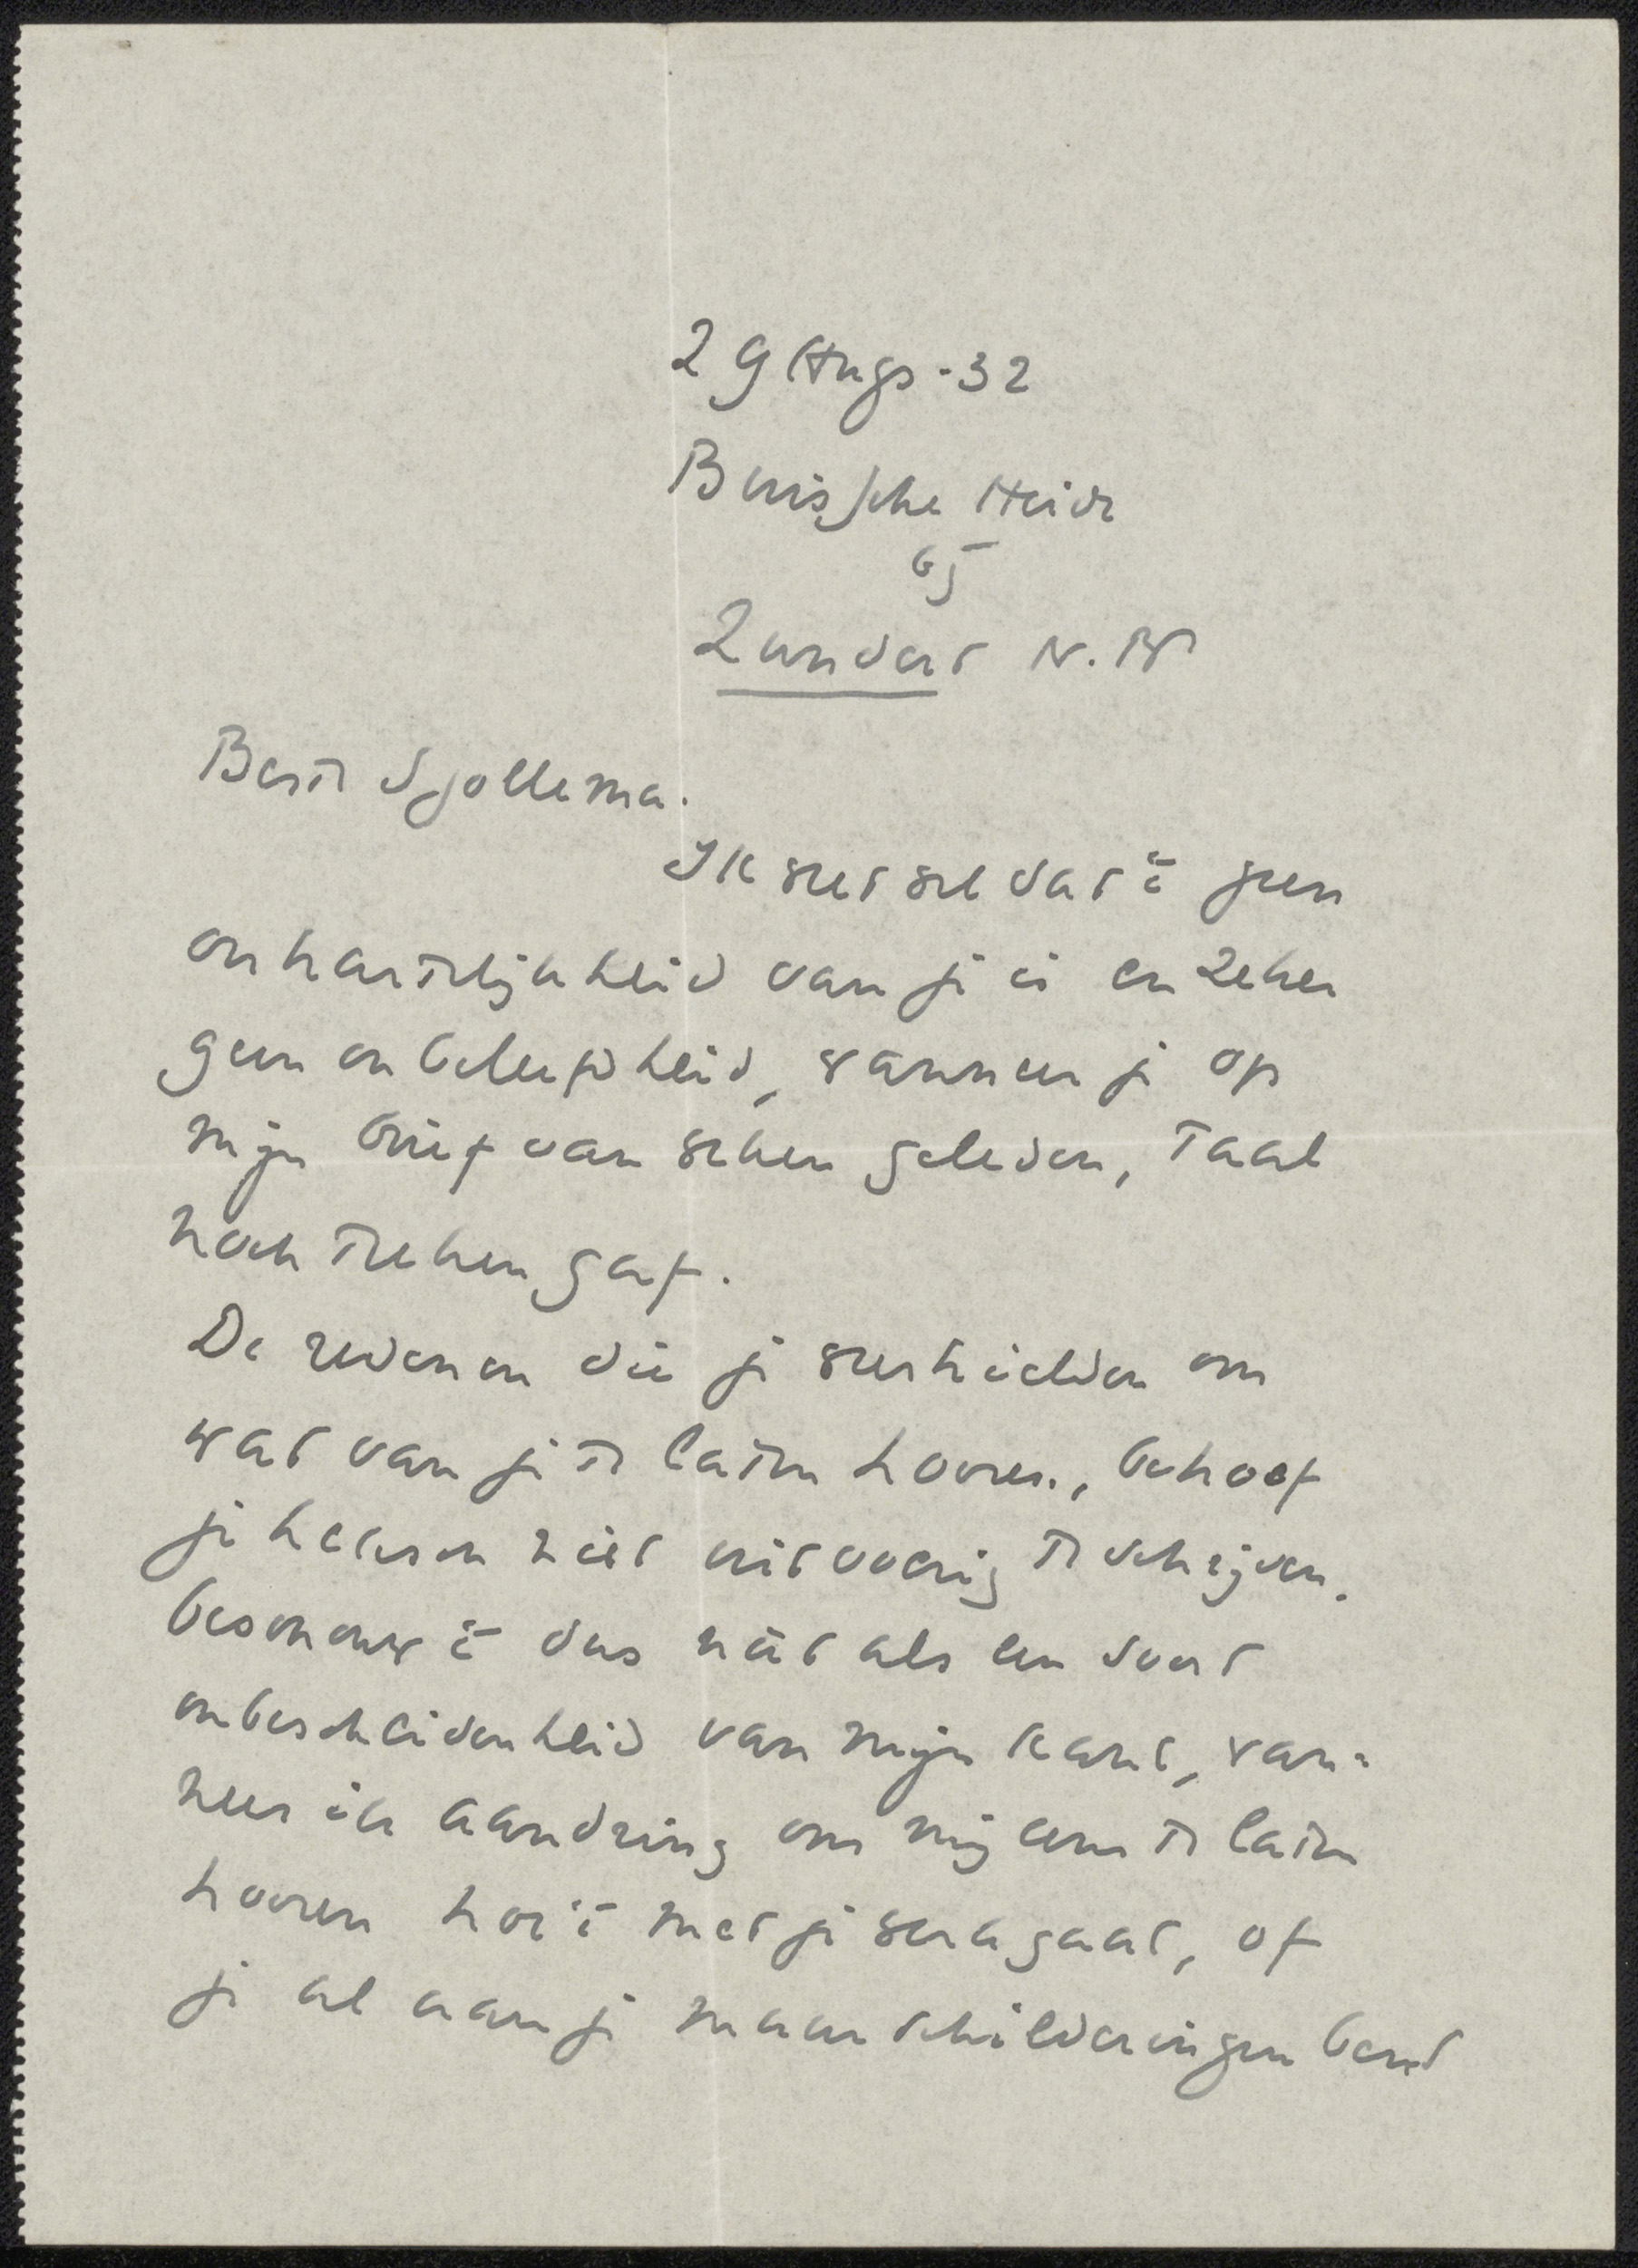 29 Augs-32
Buissche Heide
65
Zundert N.B
Beste Sjollema.
Ik weet wel dat 't geen
onhartelijkheid van je is en zeker
geen onbeleefdheid, wanneer je op
mijn brief van weken geleden, taal
noch teeken gaf.
De redenen die je weerhielden om
wat van je te laten hooren, behoef
je heusch niet uitvoerig te schrijven.
beschouw 't dus niet als een soort
onbescheidenheid van mijn kant, wan-
neer ik aandring om mij eens te laten
hooren hoe 't met je werk gaat, of
je al aan je muurschilderingen bent